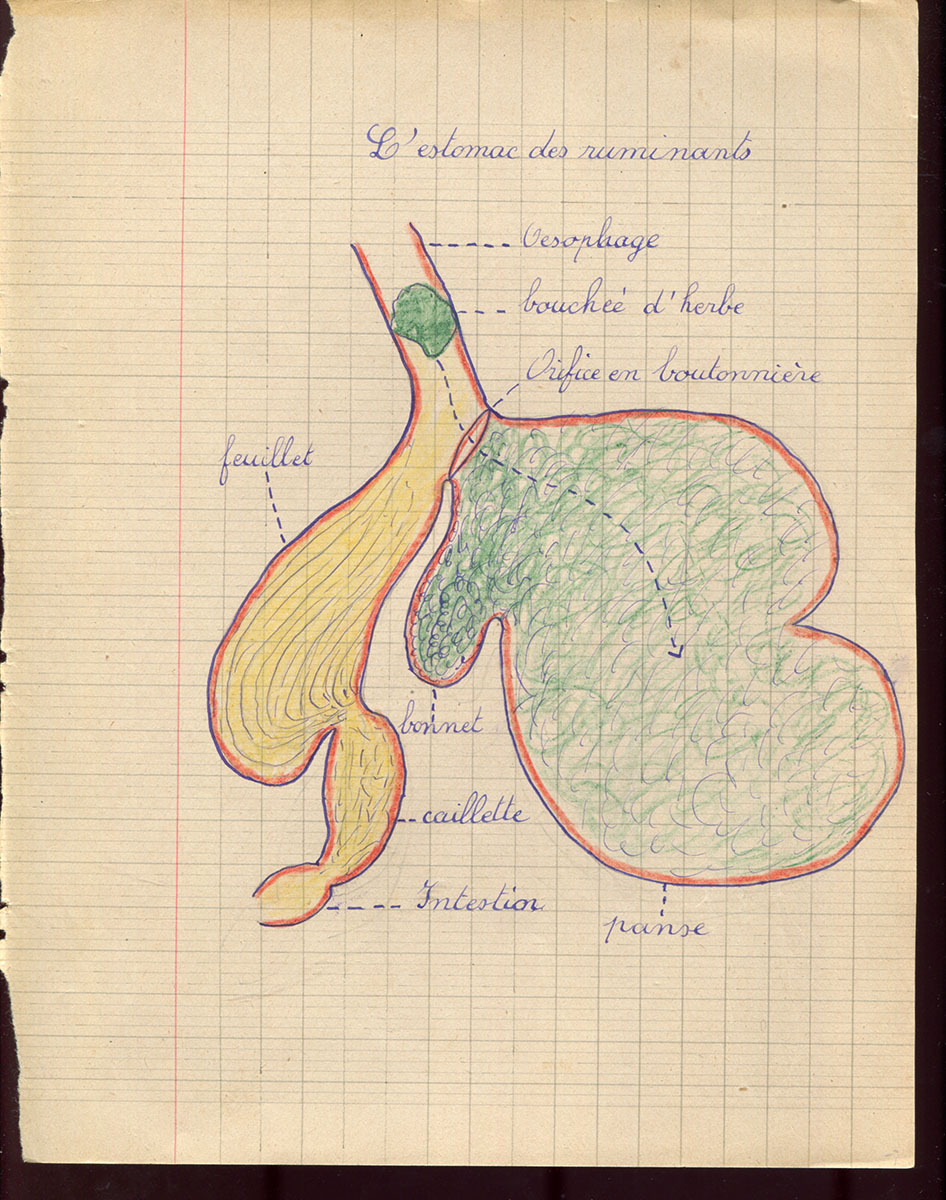 L'estomac des ruminants
Oesophage
boucheé d'herbe
Orifice en boutonnière
feuillet
bonnet
caillette
Intestion
panse